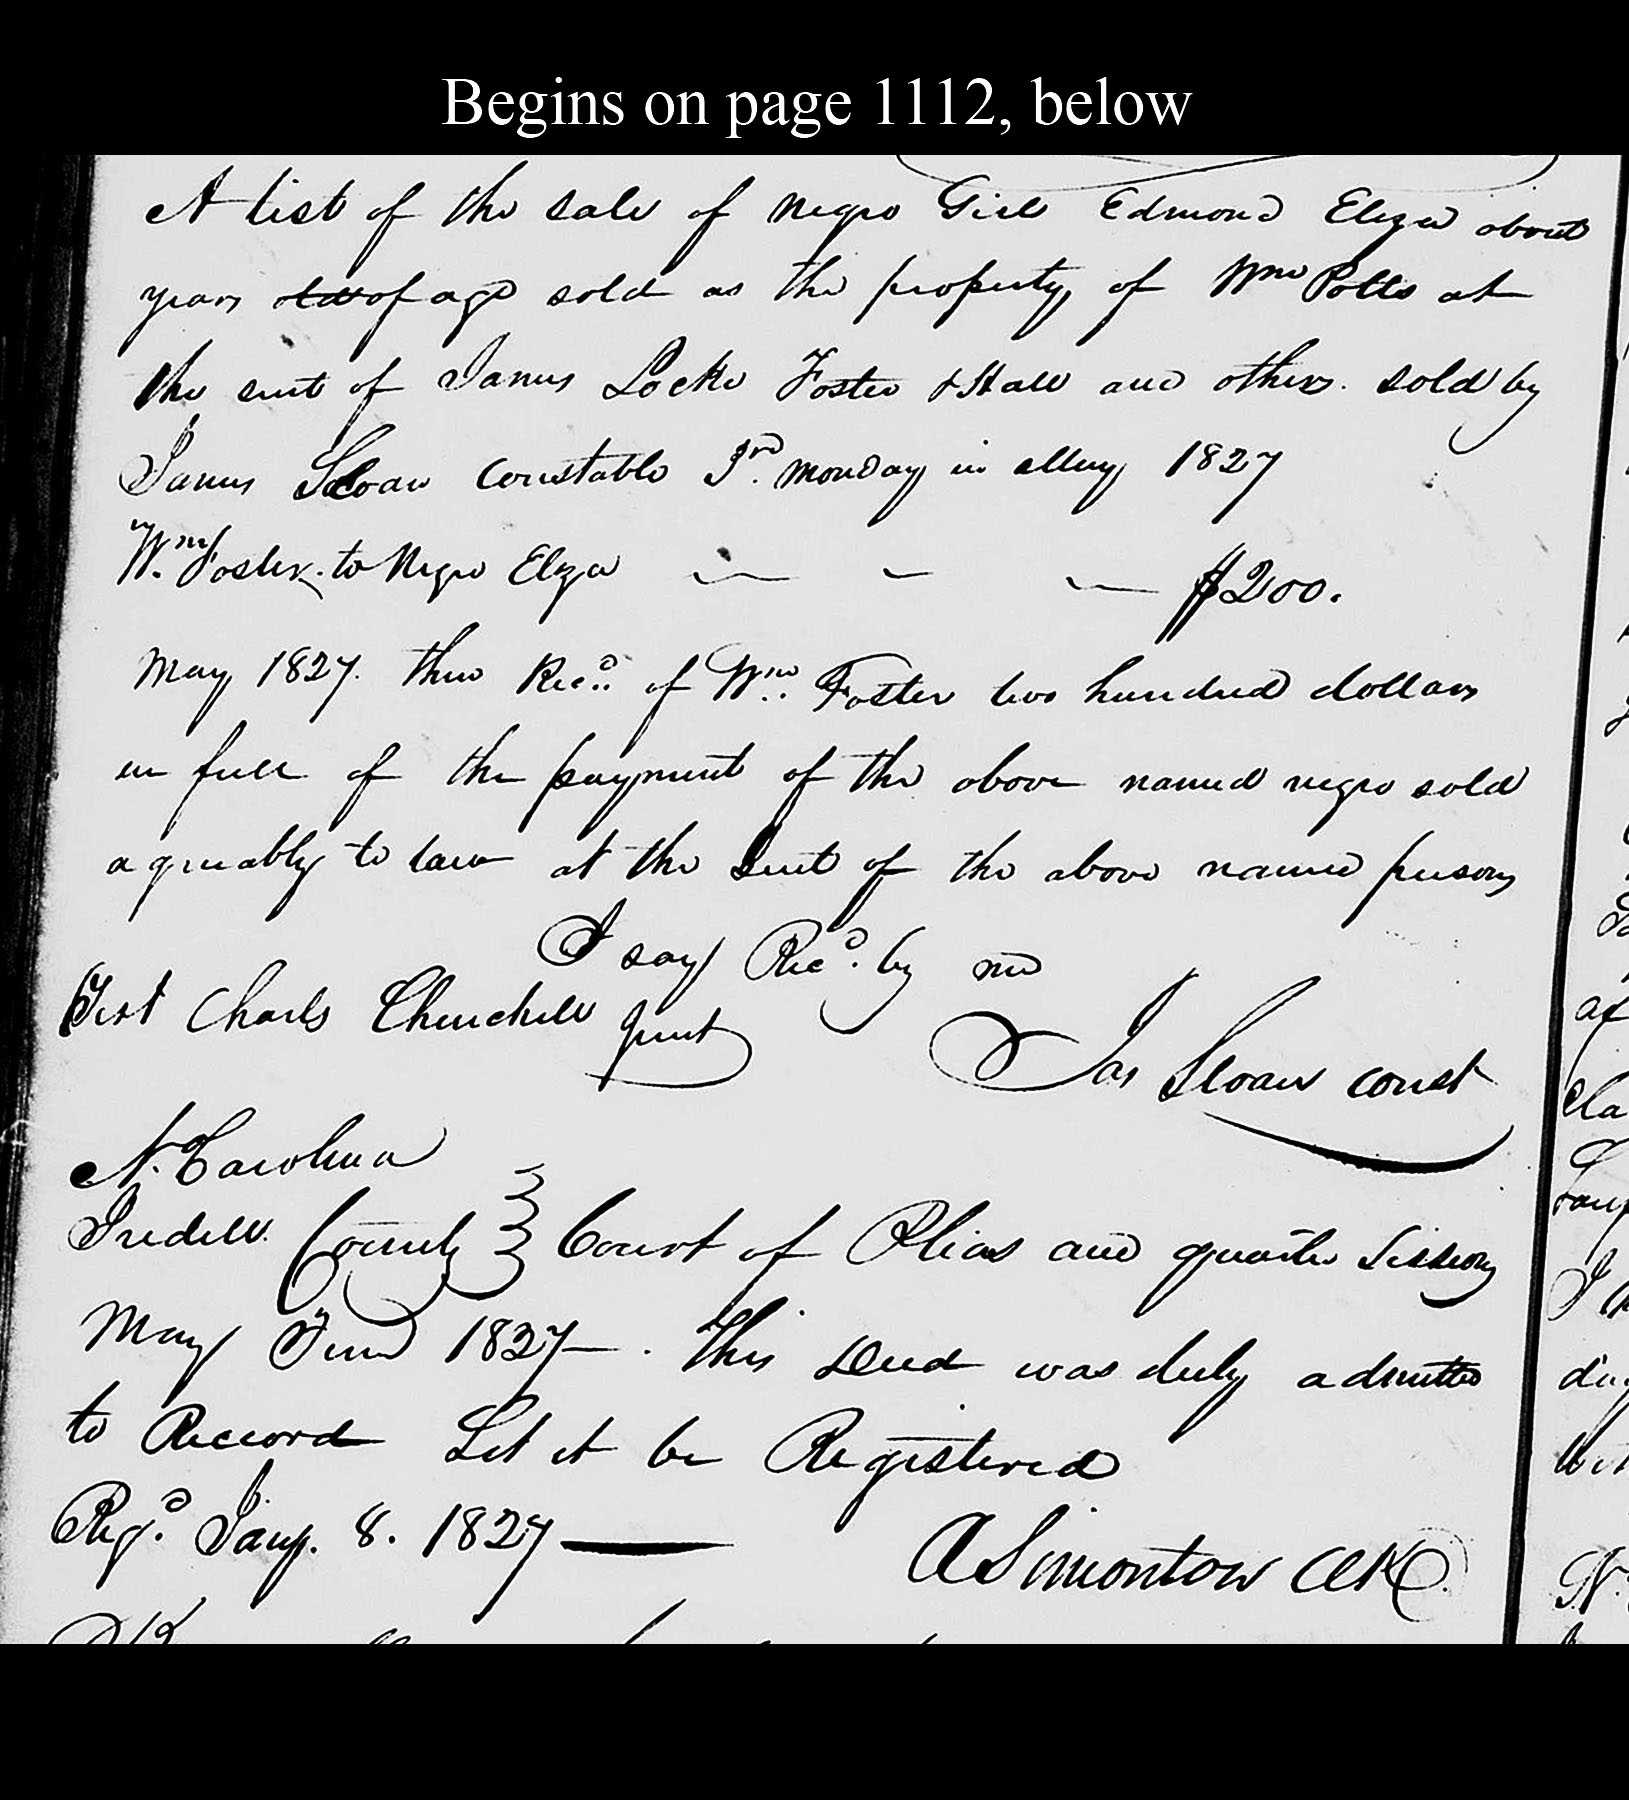 Begins on page 1112, below
A list of the sale of negro Girl Edmond Eliza about
years old of age sold as the property of Wm Potts at
the suit of James Locke Foster & Hall and others. sold by
James Sloan Constable 3rd. monday in May 1827
Wm. Foster. to Negro Eliza — — — $200.
May 1827. then Recd. of Wm. Foster two hundred dollars
in full of the payment of the above named negro sold
agreeably to law at the Suit of the above named persons
I say Recd. by me
Test Charls Churchill Jurat
Jas Sloan const
N. Carolina
Iredell County } Court of Pleas and quarter Sessions
May Term 1827 — . This Deed was duly admitted
to Record Let it be Registered
Regd. Jany. 8. 1827 —
A Simonton Clk